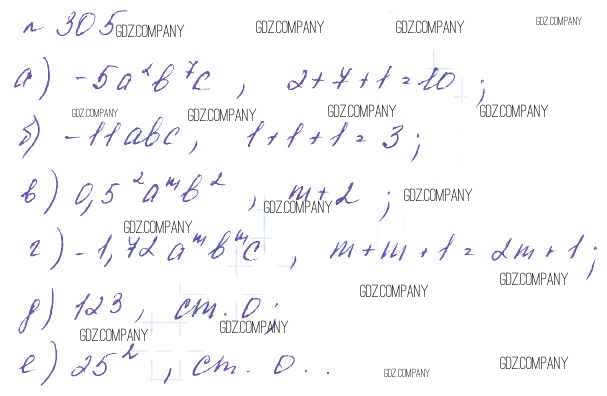 № 305 GDZ.COMPANY GDZ.COMPANY GDZ.COMPANY GDZ.COMPANY
а) -5a²b⁷c, 2+7+1=10;
GDZ.COMPANY GDZ.COMPANY GDZ.COMPANY GDZ.COMPANY
б) -11abc, 1+1+1=3;
в) 0,5²aᵐb², m+2; GDZ.COMPANY
GDZ.COMPANY
GDZ.COMPANY
г) -1,72aᵐbᵐc, m+m+1=2m+1;
GDZ.COMPANY
GDZ.COMPANY
д) 123, ст. 0;
GDZ.COMPANY GDZ.COMPANY
е) 25², ст. 0..
GDZ.COMPANY GDZ.COMPANY